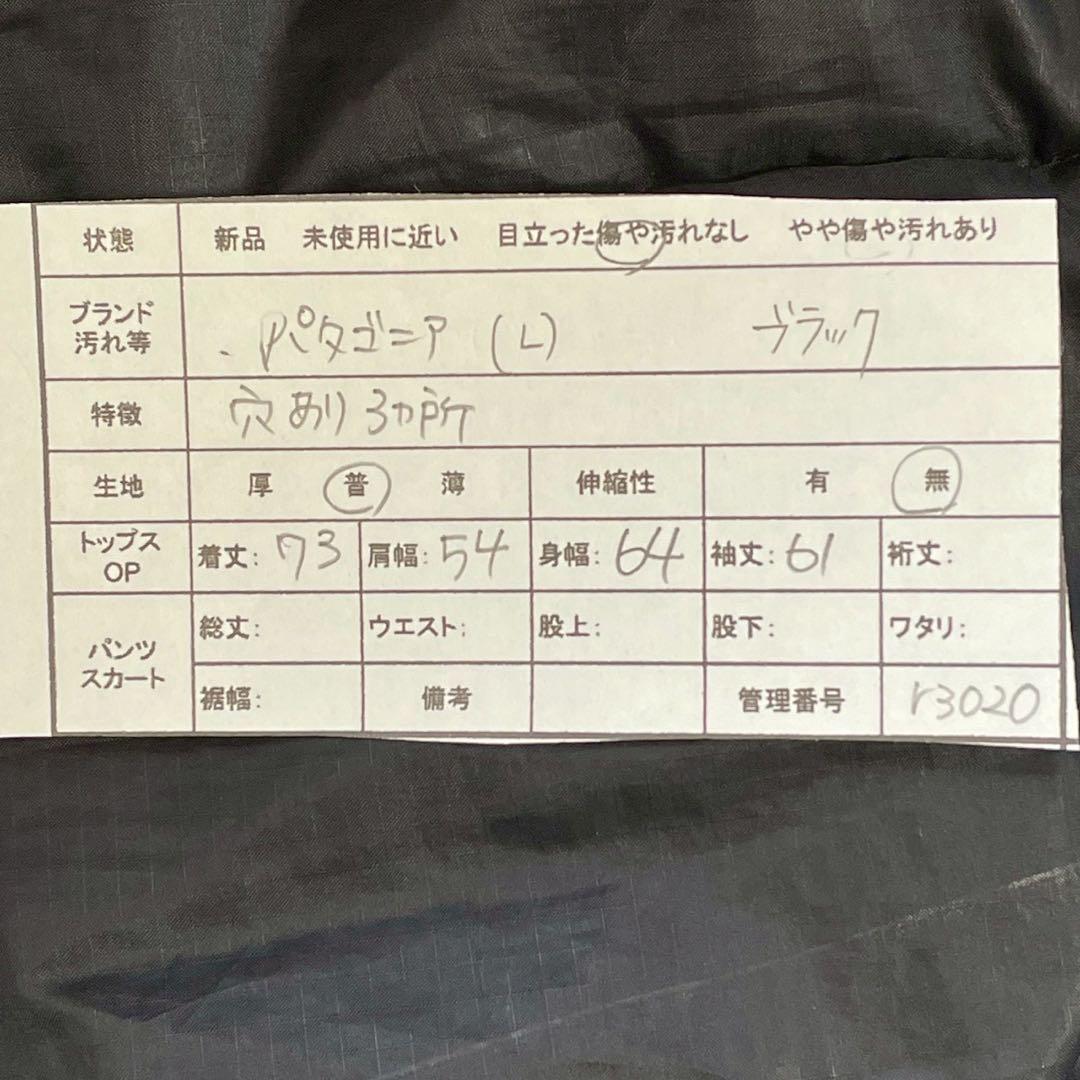 状態 新品 未使用に近い 目立った傷や汚れなし やや傷や汚れあり
ブランド
汚れ等 パタゴニア (L) ブラック
特徴 穴あり 3カ所
生地 厚 普 薄 伸縮性 有 無
トップス
OP 着丈: 73 肩幅: 54 身幅: 64 袖丈: 61 裄丈:
パンツ
スカート 総丈: ウエスト: 股上: 股下: ワタリ:
裾幅: 備考 管理番号 r3020